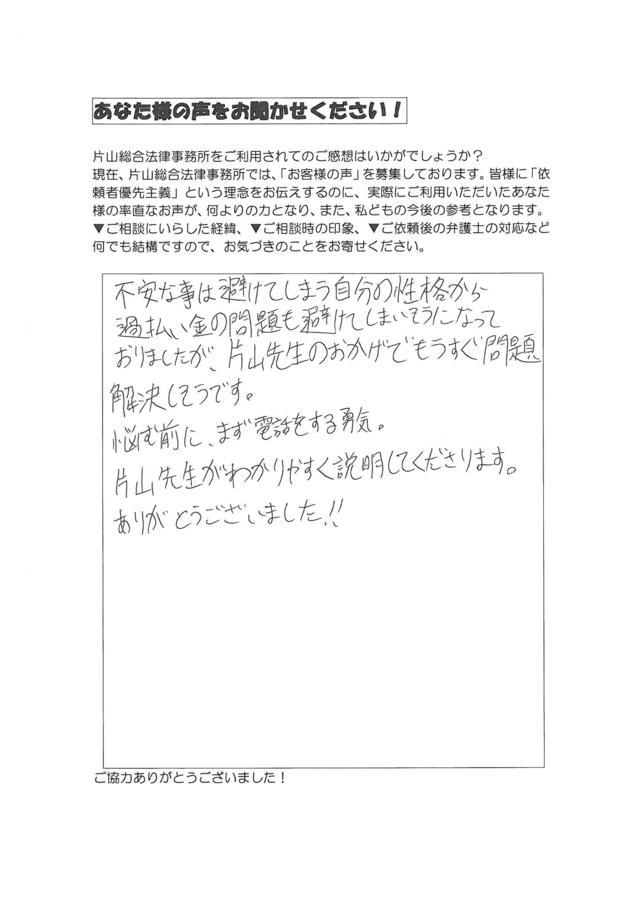 あなた様の声をお聞かせください！
片山総合法律事務所をご利用されてのご感想はいかがでしょうか？
現在、片山総合法律事務所では、「お客様の声」を募集しております。皆様に「依
頼者優先主義」という理念をお伝えするのに、実際にご利用いただいたあなた
様の率直なお声が、何よりの力となり、また、私どもの今後の参考となります。
▼ご相談にいらした経緯、▼ご相談時の印象、▼ご依頼後の弁護士の対応など
何でも結構ですので、お気づきのことをお寄せください。
不安な事は避けてしまう自分の性格から
過払い金の問題も避けてしまいそうになって
おりましたが、片山先生のおかげでもうすぐ問題
解決しそうです。
悩む前に、まず電話をする勇気。
片山先生がわかりやすく説明してくださります。
ありがとうございました!!
ご協力ありがとうございました！